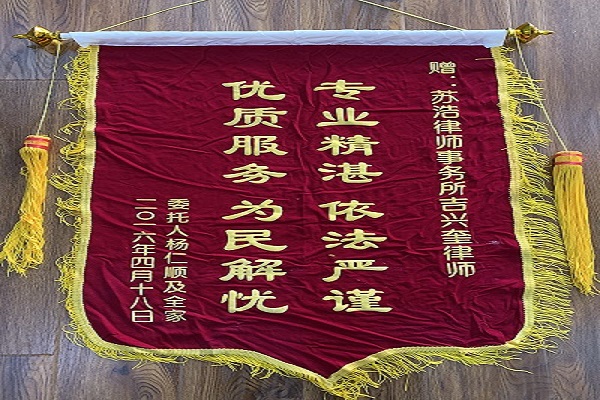 赠：苏浩律师事务所吉兴奎律师
专业精湛 依法严谨
优质服务 为民解忧
委托人杨仁顺及全家
二〇一六年四月十八日